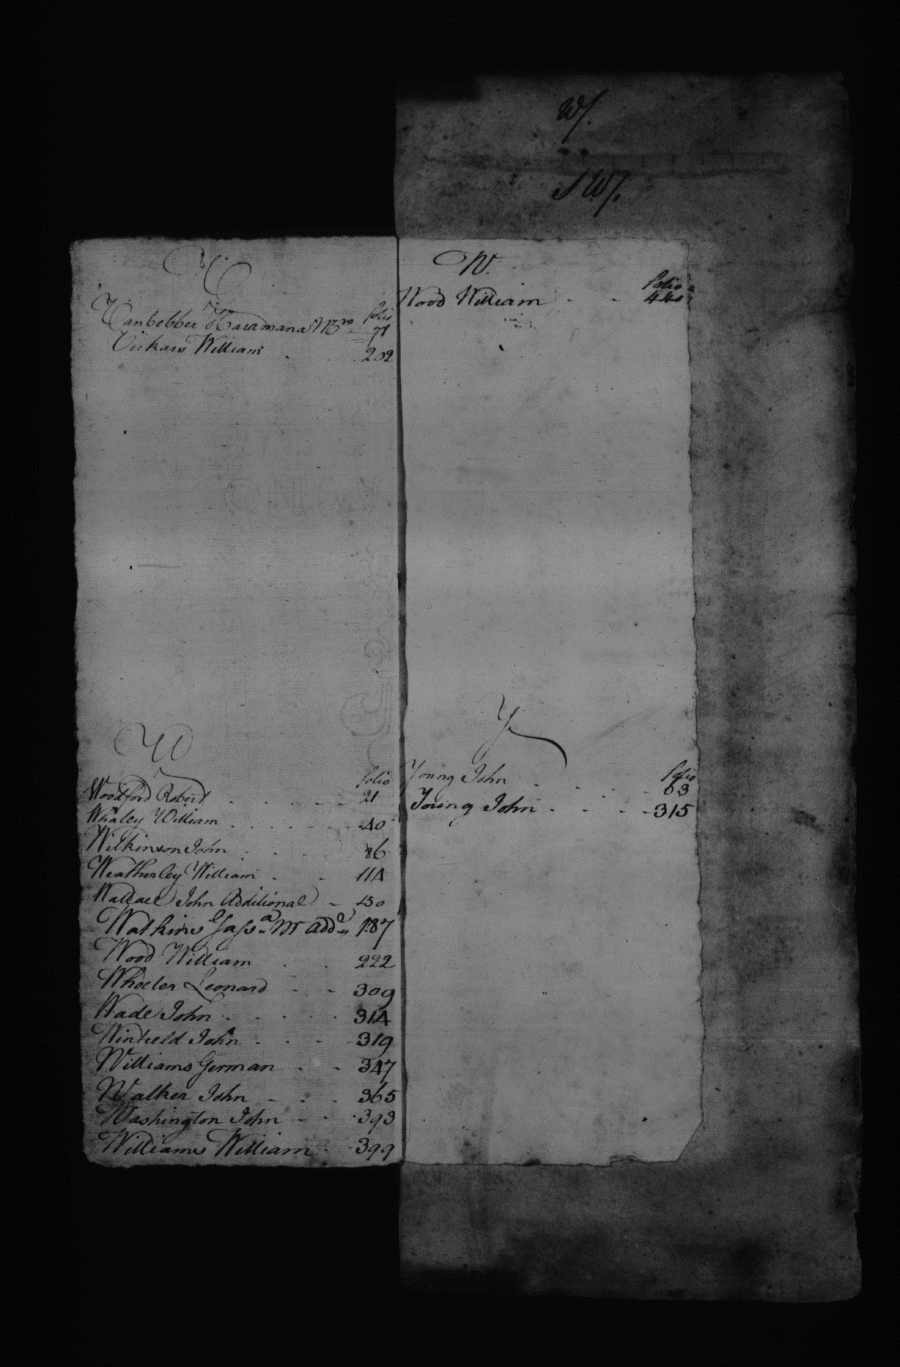 W/.
J W/.
V
folio
Vanbebber Haramanas
71
Vickars William 202
W
folio
Woodford Robert 21
Whaley William 40
Wilkinson John 86
Weatherley William 114
Wallace John Additional 130
Watkins Gass Mr add 187
Wood William 222
Wheeler Leonard 309
Wade John 314
Winfield John 319
Williams German 347
Walker John 365
Washington John 393
Williams William 399
W.
folio
Wood William
Y
folio
Young John 63
Young John 315